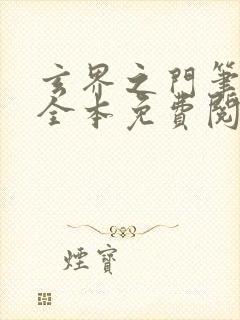 玄界之門筆
全本免費閱
煙寶